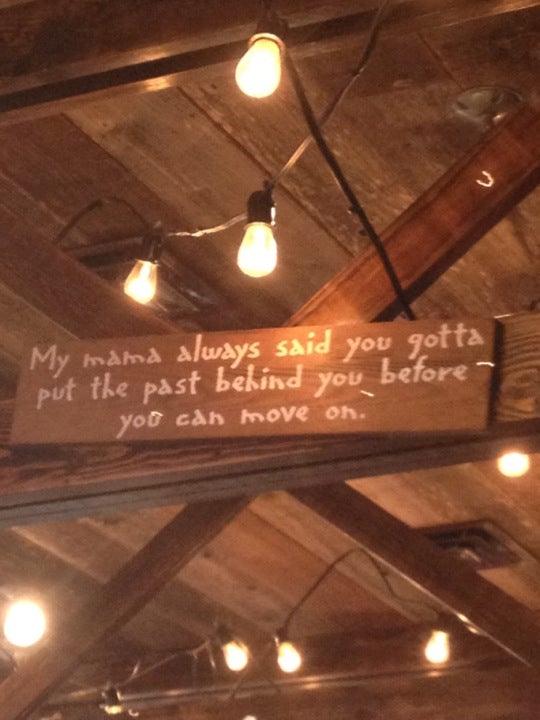 My mama always said you gotta
put the past behind you before
you can move on.